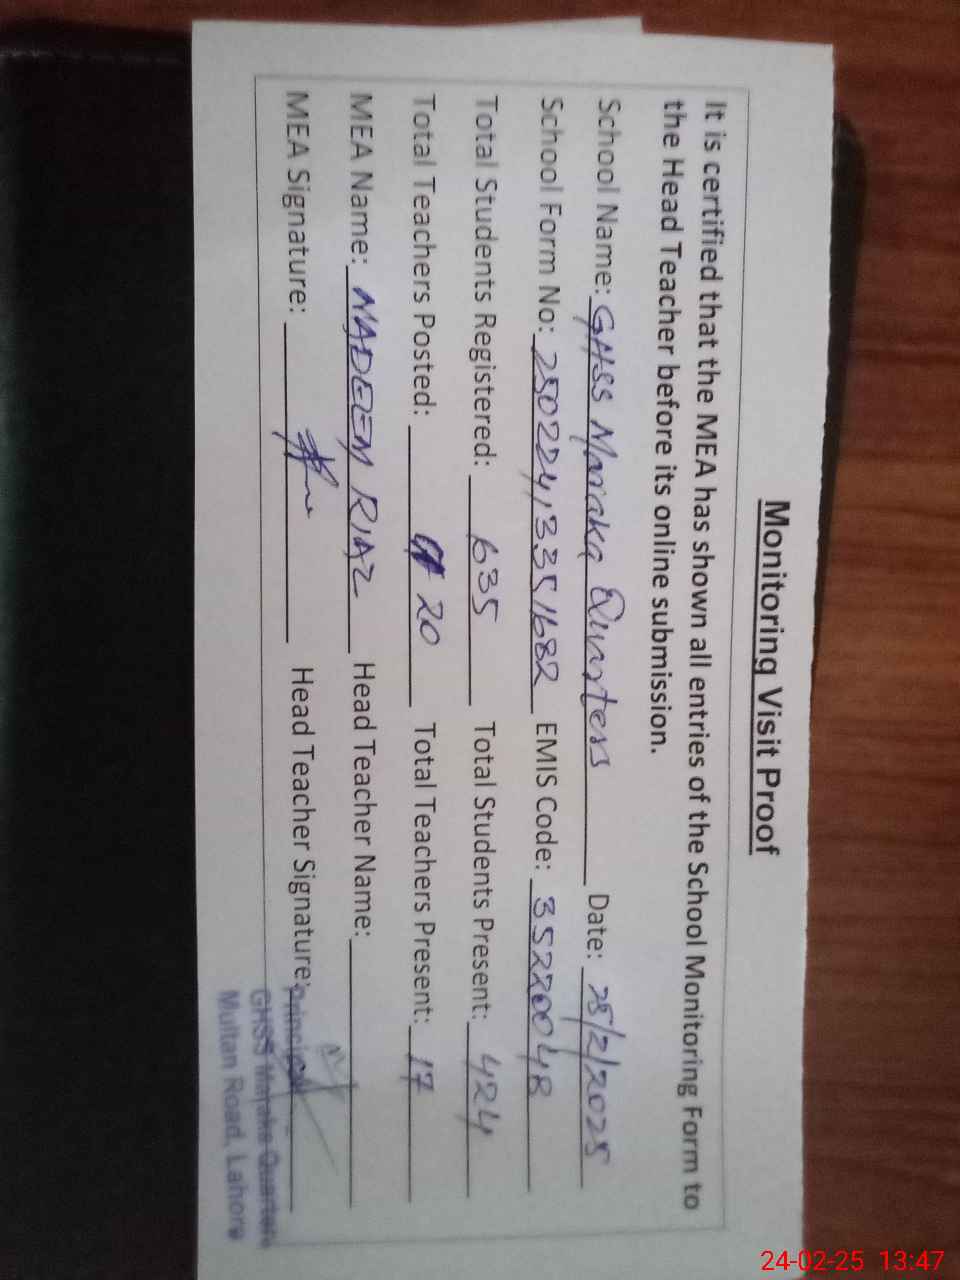 Monitoring Visit Proof
It is certified that the MEA has shown all entries of the School Monitoring Form to
the Head Teacher before its online submission.
School Name: GHSS Maraka Quarters Date: 25/2/2025
School Form No: 25022413351682 EMIS Code: 35220048
Total Students Registered: 635 Total Students Present: 424
Total Teachers Posted: 20 Total Teachers Present: 17
MEA Name: NADEEM RIAZ Head Teacher Name:
MEA Signature: Head Teacher Signature:
Principal
GHSS Maraka Quarters
Multan Road, Lahore
24-02-25 13:47